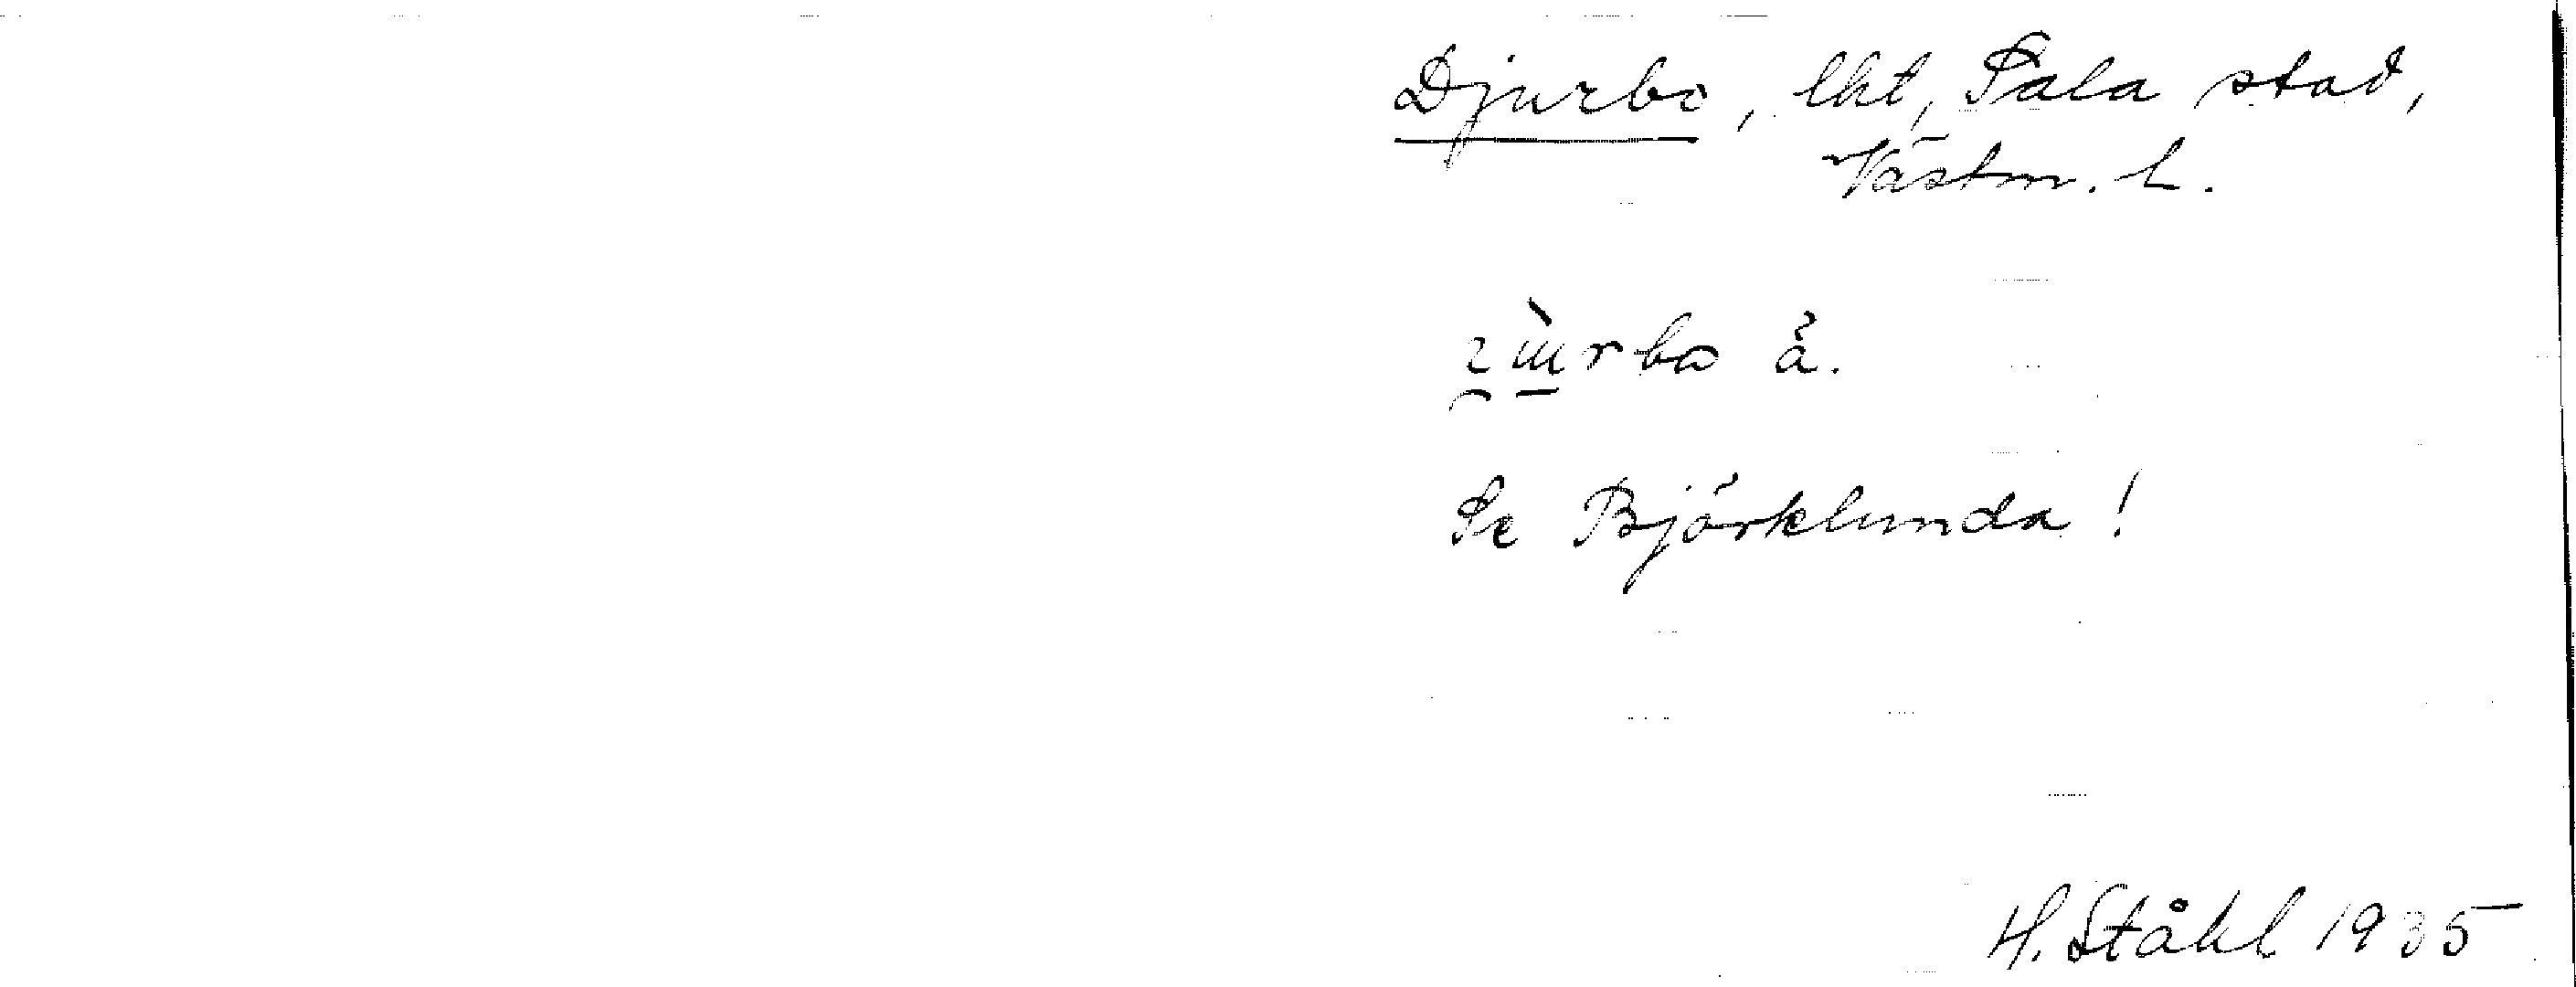 Djurbo, lht, Sala stad,
Västm. l.
Se Björklunda!
H. Ståhl 1935